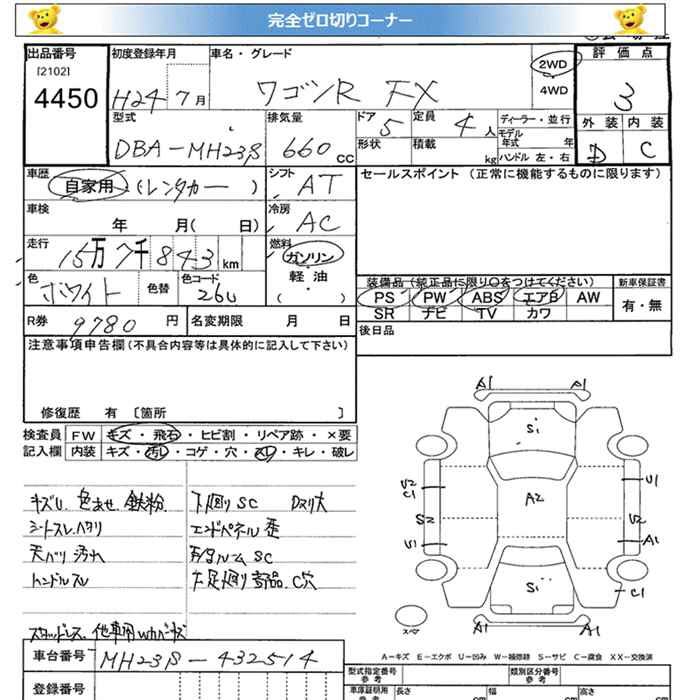 完全ゼロ切りコーナー
出品番号
[2102]
4450
初度登録年月
H24 7月
車名・グレード
ワゴンR FX
2WD
4WD
評価点
3
外装 内装
D C
型式
DBA-MH23S
排気量
660 CC
ドア
5
定員
4人
形状
積載
kg
ディーラー・並行
モデル年式 年
ハンドル 左・右
車歴
自家用(レンタカー )
シフト
AT
セールスポイント (正常に機能するものに限ります)
車検
年 月( 日)
冷房
AC
走行
15万7千843 km
燃料
ガソリン
軽・油
( )
色
ホワイト
色替
色コード
26U
装備品(純正品に限り○をつけてください)
PS PW ABS エアB AW
SR ナビ TV カワ
新車保証書
有・無
R券 9780 円
名変期限 月 日
後日品
注意事項申告欄(不具合内容等は具体的に記入して下さい)
修復歴 有 [箇所 ]
検査員
記入欄
FW キズ・飛石・ヒビ割・リペア跡・×要
内装 キズ・汚レ・コゲ・穴・スレ・キレ・破レ
キズU、色あせ、鉄粉
シートスレ、ハタリ
天バリ汚れ
ハンドルスレ
下廻りSC Dヌリ大
エンドパネル歪
SC
C穴
スタッドレス、他車用
A1 A1
S1
U2
C1
A2
U1
S2
U2
U1
A1
S1
C1
スペア
A-キズ E-エクボ U-凹み W-補修跡 S-サビ C-腐食 XX-交換済
車台番号
MH23S-432514
登録番号
型式指定番号
参考
類別区分番号
参考
車庫証明用
参考
長さ cm
幅 cm
高さ cm